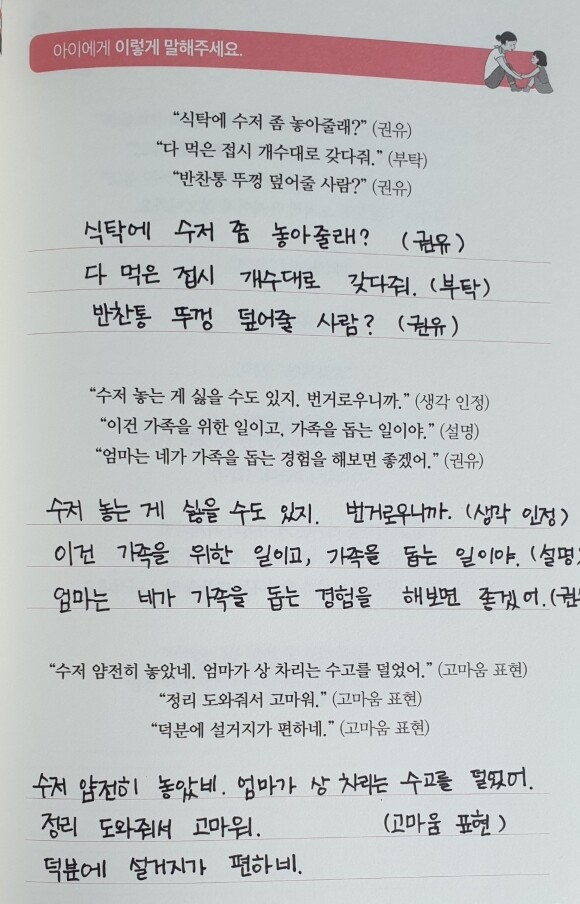 아이에게 이렇게 말해주세요.
“식탁에 수저 좀 놓아줄래?” (권유)
“다 먹은 접시 개수대로 갖다줘.” (부탁)
“반찬통 뚜껑 덮어줄 사람?” (권유)
식탁에 수저 좀 놓아줄래? (권유)
다 먹은 접시 개수대로 갖다줘. (부탁)
반찬통 뚜껑 덮어줄 사람? (권유)
“수저 놓는 게 싫을 수도 있지. 번거로우니까.” (생각 인정)
“이건 가족을 위한 일이고, 가족을 돕는 일이야.” (설명)
“엄마는 네가 가족을 돕는 경험을 해보면 좋겠어.” (권유)
수저 놓는 게 싫을 수도 있지. 번거로우니까. (생각 인정)
이건 가족을 위한 일이고, 가족을 돕는 일이야. (설명)
엄마는 네가 가족을 돕는 경험을 해보면 좋겠어. (권
“수저 얌전히 놓았네. 엄마가 상 차리는 수고를 덜었어.” (고마움 표현)
“정리 도와줘서 고마워.” (고마움 표현)
“덕분에 설거지가 편하네.” (고마움 표현)
수저 얌전히 놓았네. 엄마가 상 차리는 수고를 덜었어.
정리 도와줘서 고마워. (고마움 표현)
덕분에 설거지가 편하네.